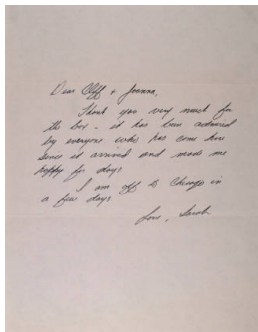 Dear Cliff & Joanna,
Thank you very much for
the box - it has been admired
by everyone who has come here
since it arrived and made me
happy for days.
I am off to Chicago in
a few days
love, Sarah